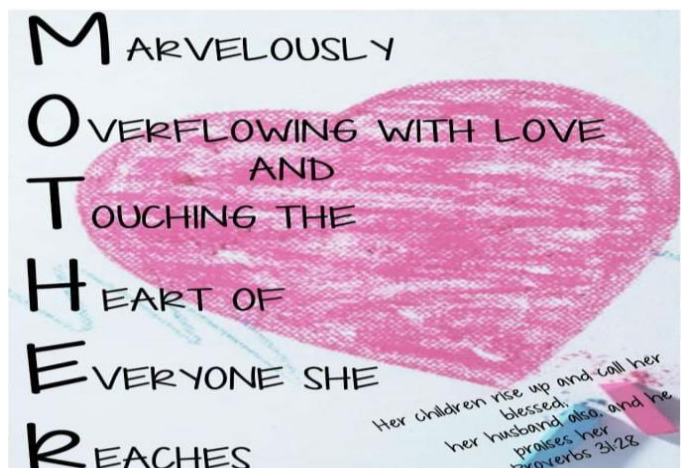 MARVELOUSLY
OVERFLOWING WITH LOVE
AND
TOUCHING THE
HEART OF
EVERYONE SHE
REACHES
Her children rise up and call her
blessed;
her husband also, and he
praises her
Proverbs 31:28